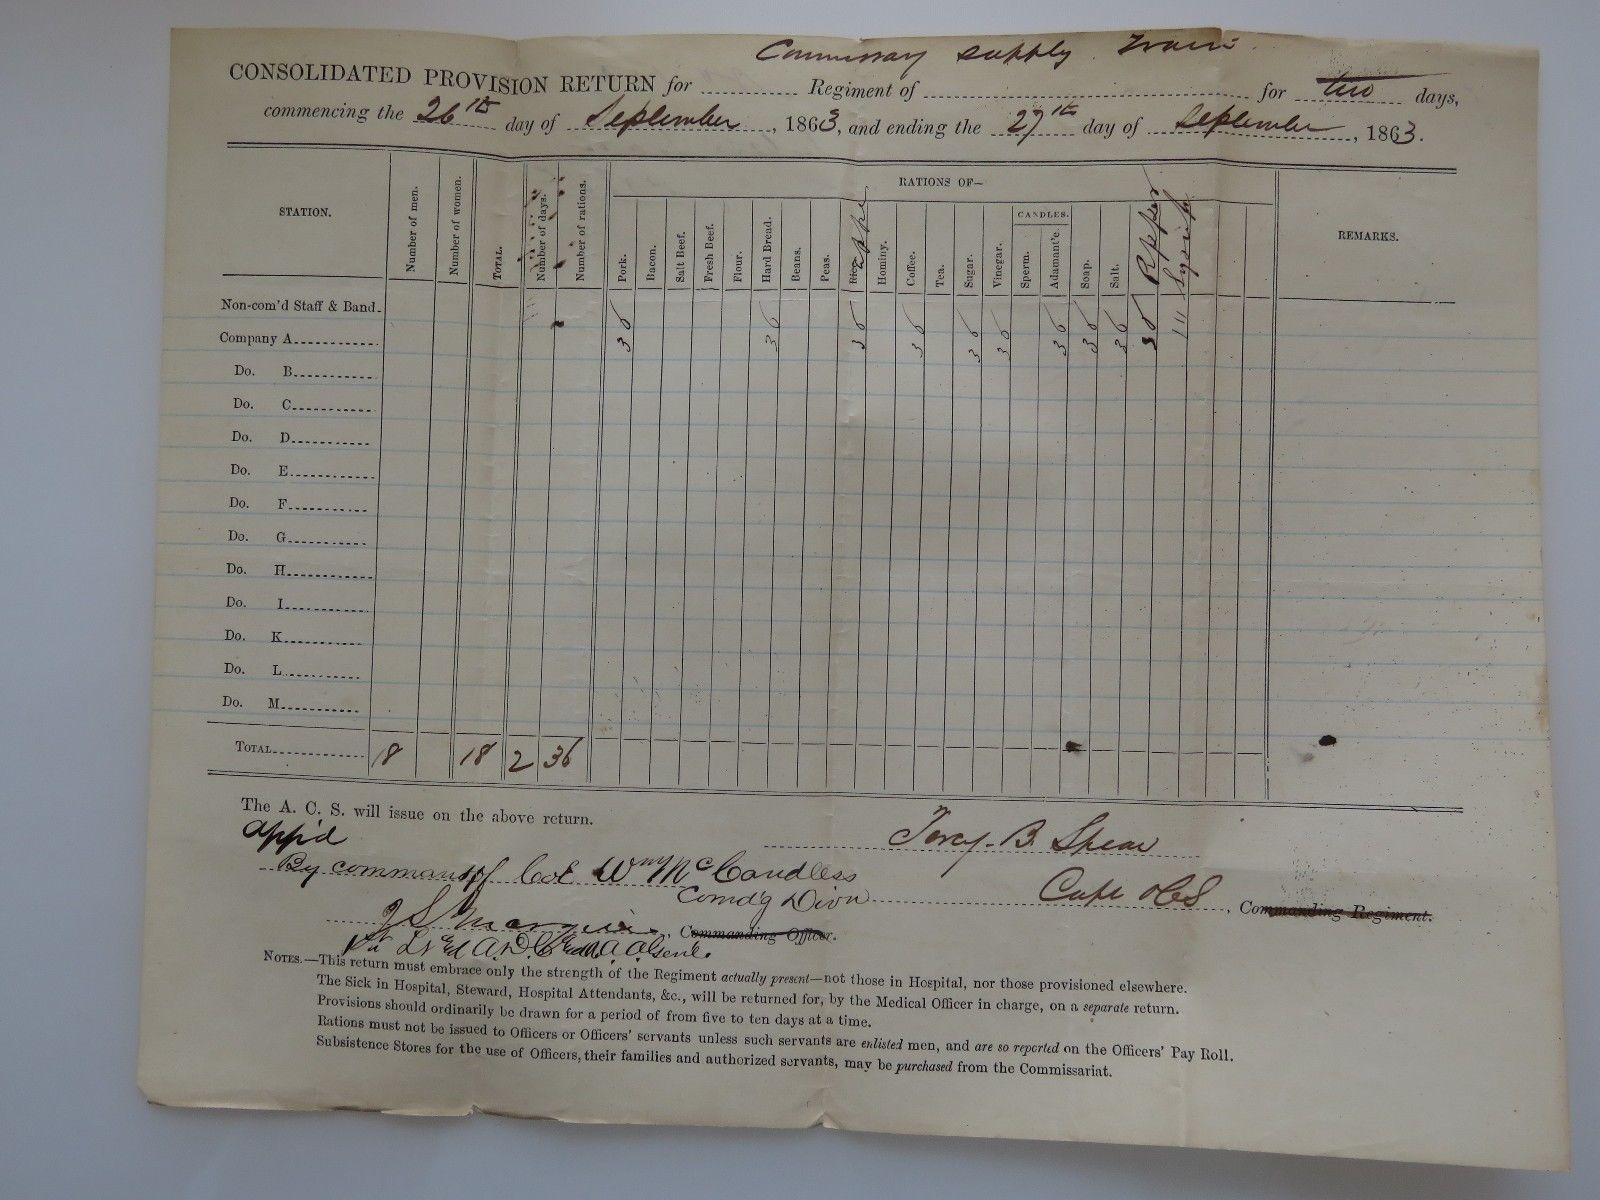 Commissary supply Train
CONSOLIDATED PROVISION RETURN for ........... Regiment of ........... for two days,
commencing the 26th day of September, 1863, and ending the 27th day of September, 1863.
STATION.
Number of men.
Number of women.
TOTAL.
Number of days.
Number of rations.
RATIONS OF—
Pork.
Bacon.
Salt Beef.
Fresh Beef.
Flour.
Hard Bread.
Beans.
Peas.
Rice.
Hominy.
Coffee.
Tea.
Sugar.
Vinegar.
CANDLES.
Sperm.
Adamant'e.
Soap.
Salt.
REMARKS.
Non-com'd Staff & Band.
Company A 36 36 36 36 36 36 36 36 36 36
Do. B
Do. C
Do. D
Do. E
Do. F
Do. G
Do. H
Do. I
Do. K
Do. L
Do. M
TOTAL 18 18 2 36
The A. C. S. will issue on the above return.
App'd
B. Spear
By command of Col Wm McCandless
Comd'g Divn
Capt & CS, Commanding Regiment.
Commanding Officer.
NOTES.—This return must embrace only the strength of the Regiment actually present—not those in Hospital, nor those provisioned elsewhere.
The Sick in Hospital, Steward, Hospital Attendants, &c., will be returned for, by the Medical Officer in charge, on a separate return.
Provisions should ordinarily be drawn for a period of from five to ten days at a time.
Rations must not be issued to Officers or Officers' servants unless such servants are enlisted men, and are so reported on the Officers' Pay Roll.
Subsistence Stores for the use of Officers, their families and authorized servants, may be purchased from the Commissariat.